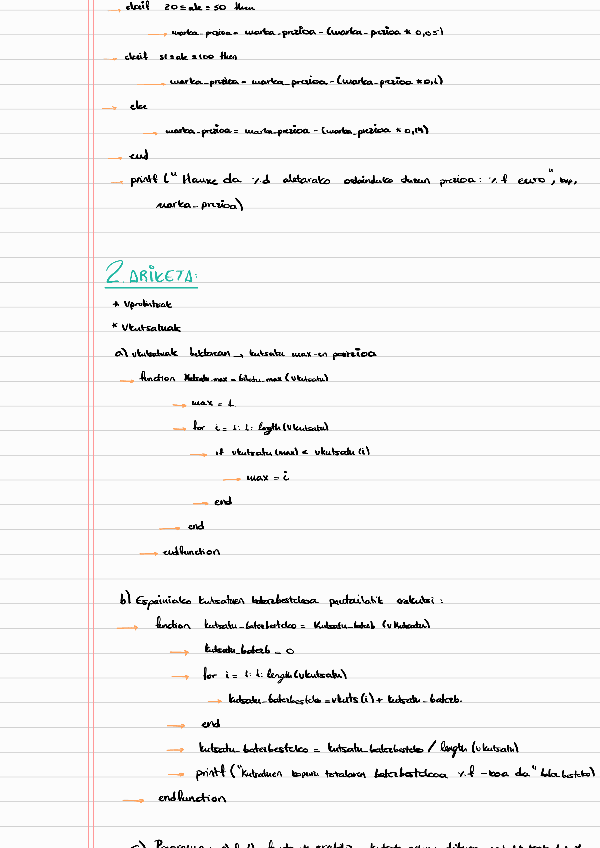 → elseif 20 ≤ ale ≤ 50 then
→ marka_prezioa = marka_prezioa - (marka_prezioa * 0,05)
→ elseif 51 ≤ ale ≤ 100 then
→ marka_prezioa = marka_prezioa - (marka_prezioa * 0,1)
→ else
→ marka_prezioa = marka_prezioa - (marka_prezioa * 0,14)
→ end
→ printf (" Hauxe da %d aletarako ordainduko duzun prezioa: %f euro",
marka_prezioa)
2. ARIKETA:
* Vprobintziak
* Vkutsatuak
a) vkutsatuak bektorean → kutsatu max-en posizioa
→ function kutsatu_max = bilatu_max (vkutsatu)
→ max = 1
→ for i = 1:1: length (vkutsatu)
→ if vkutsatu (max) < vkutsatu (i)
→ max = i
→ end
→ end
→ endfunction
b) Espainiako kutsatuen batezbestekoa pantailatik erakutsi :
→ function kutsatu_batezbesteko = kutsatu_batezb (vkutsatu)
→ kutsatu_batezb = 0
→ for i = 1:1: length (vkutsatu)
→ kutsatu_batezbesteko = vkuts (i) + kutsatu_batezb.
→ end
→ kutsatu_batezbesteko = kutsatu_batezbesteko / length (vkutsatu)
→ printf ("Kutsatuen kopuru totalaren batezbestekoa %f -koa da" batezbesteko)
→ endfunction